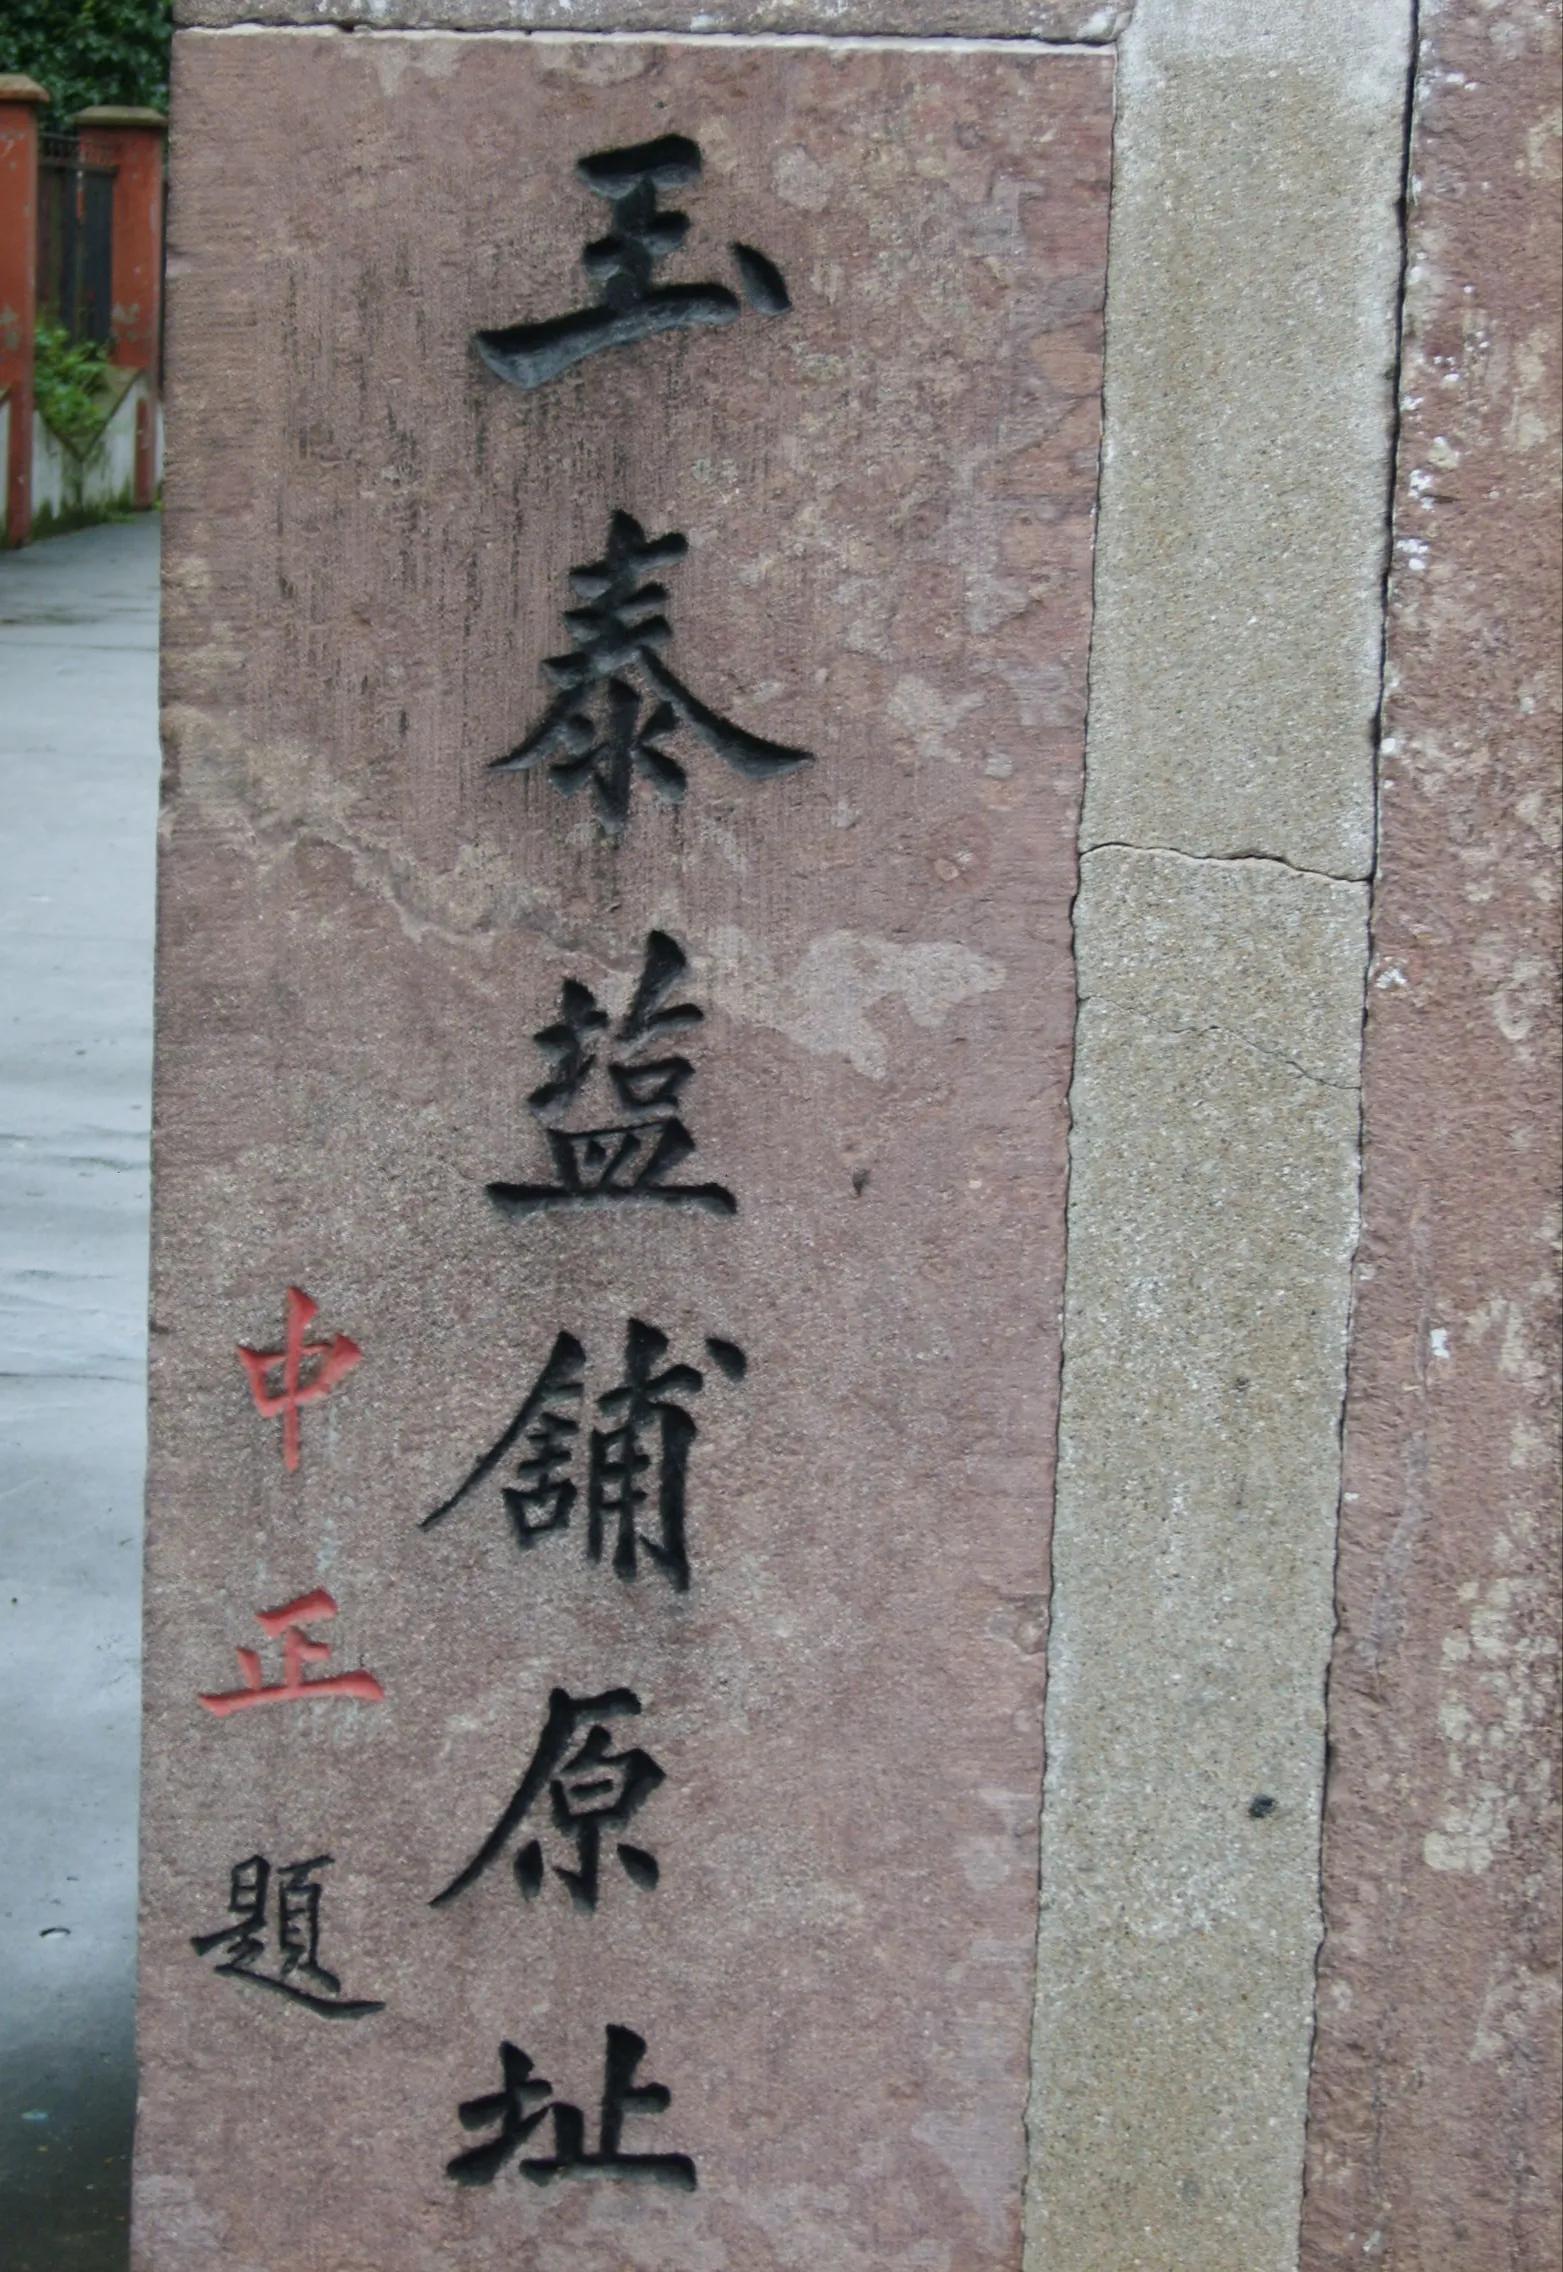 玉泰盐舖原址
中正題